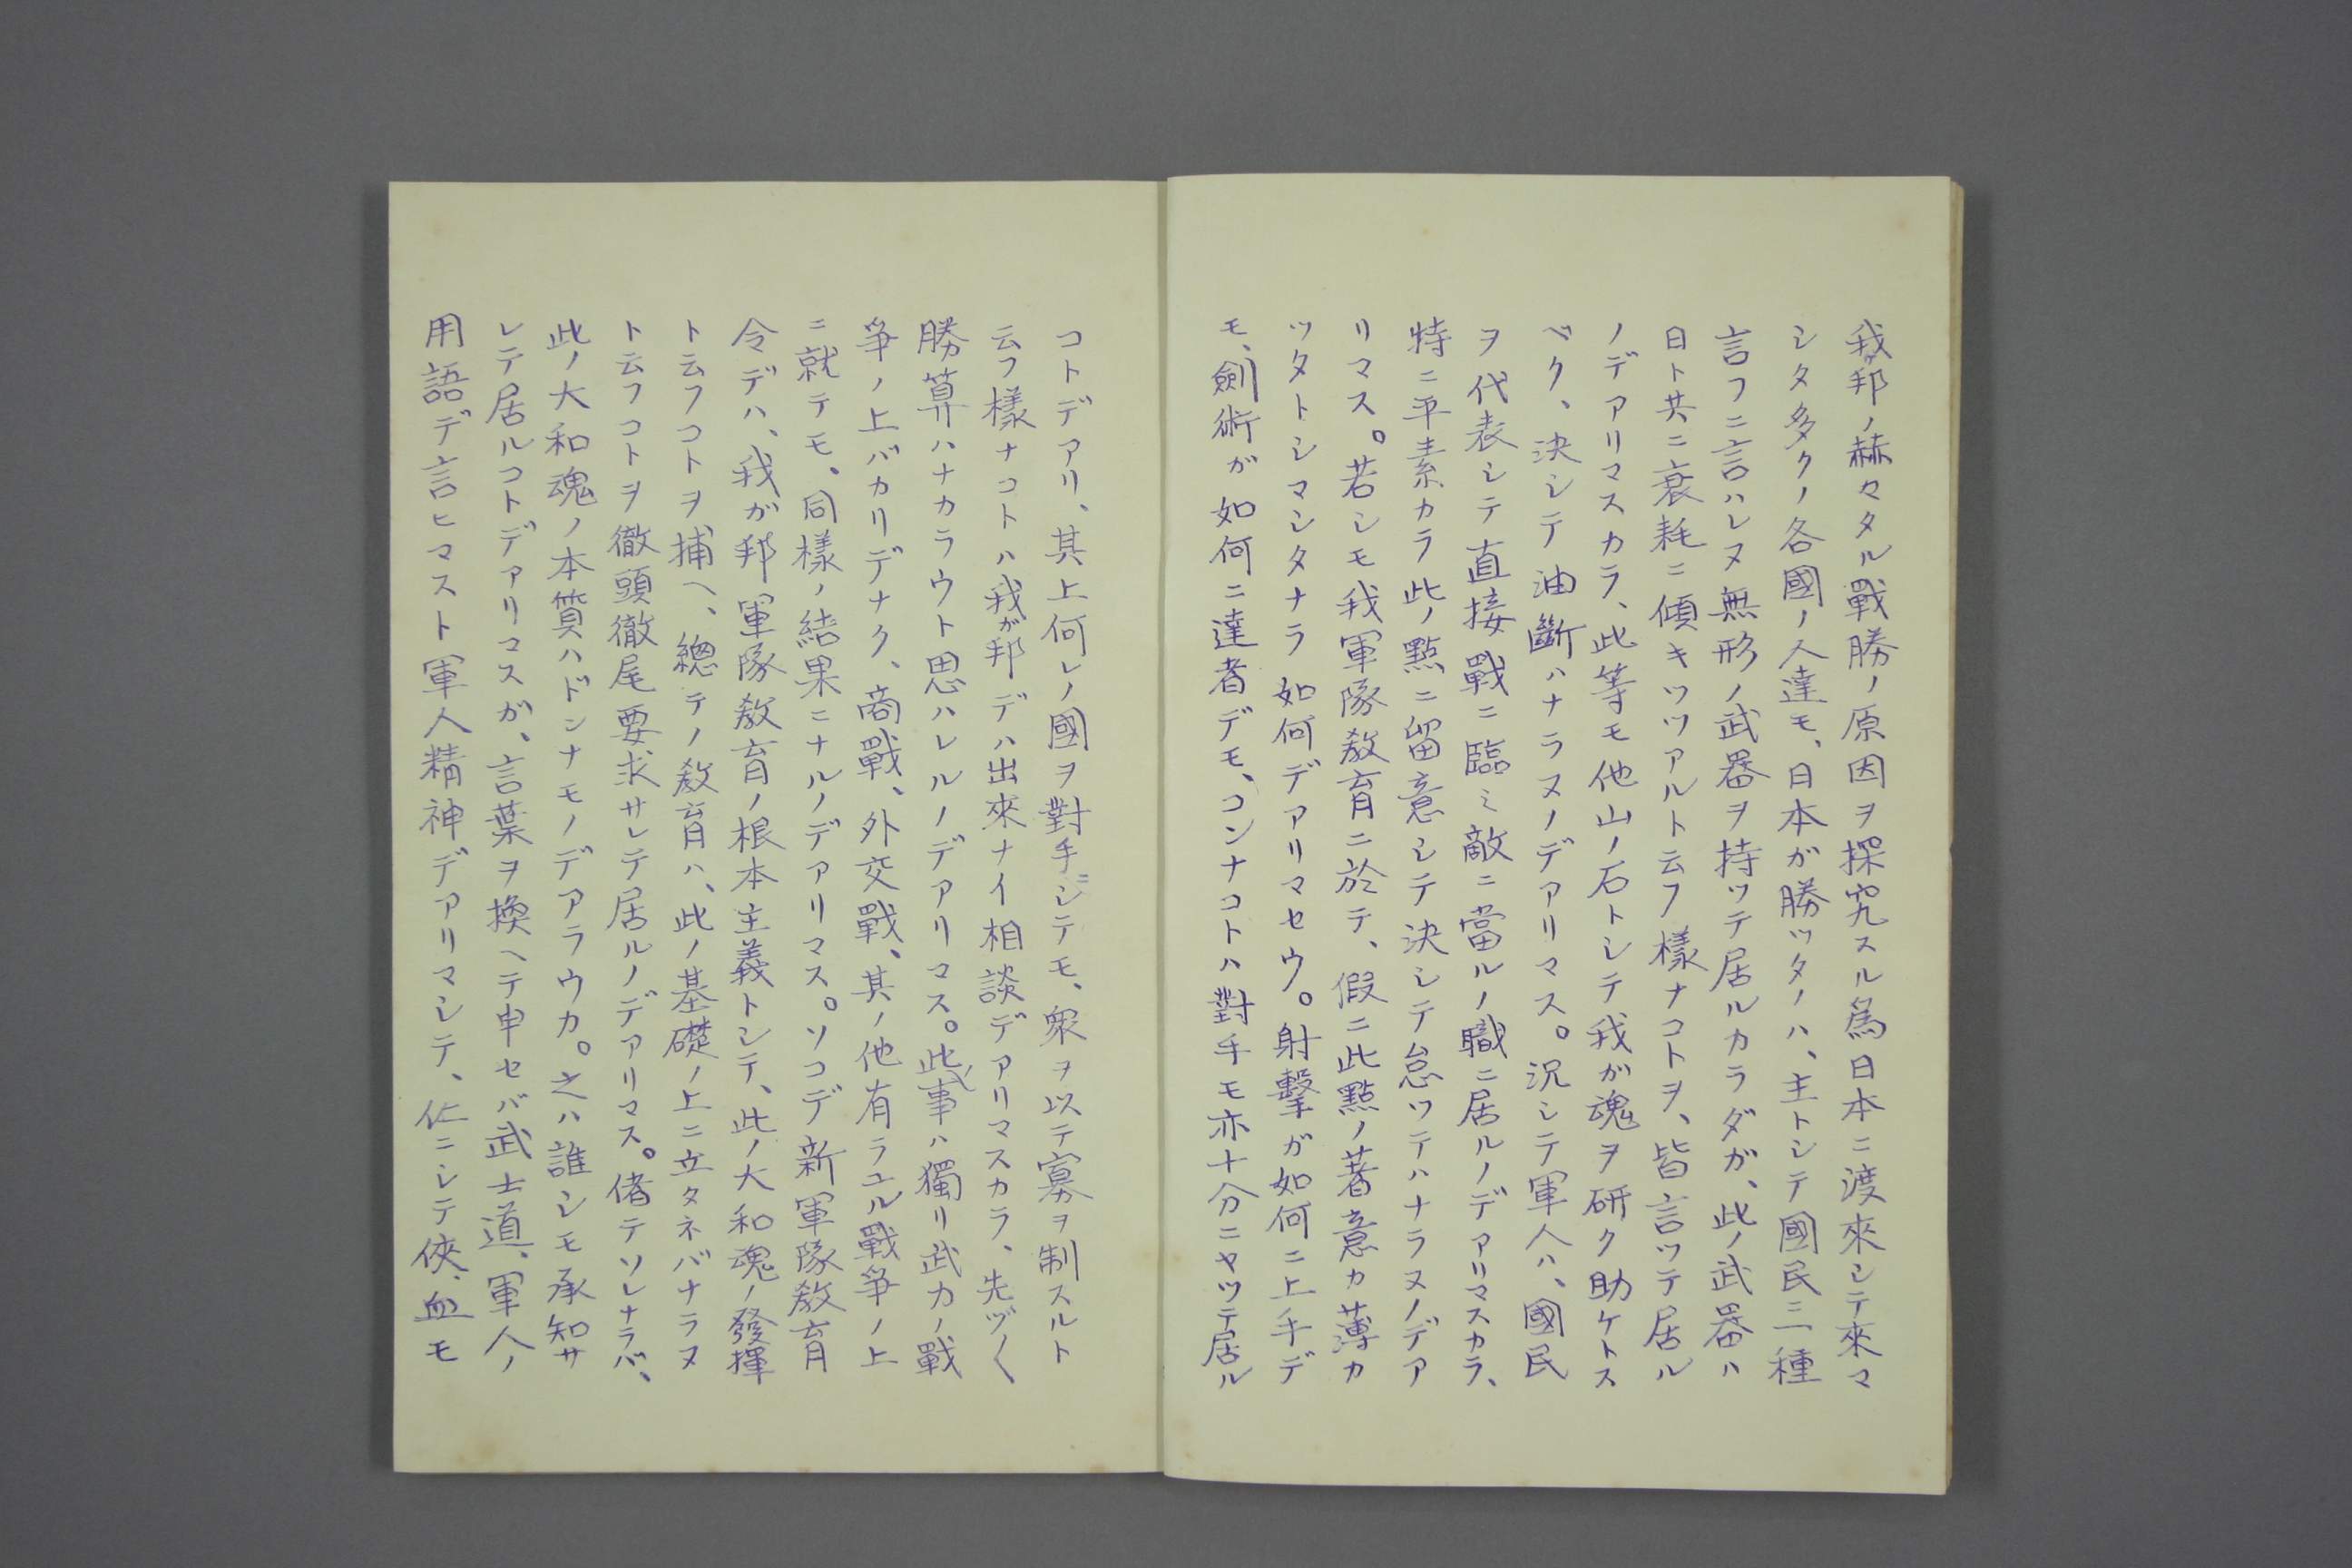 我ガ邦ノ赫々タル戰勝ノ原因ヲ探究スル為日本ニ渡來シテ來マ
シタ多クノ各國ノ人達モ、日本ガ勝ッタノハ、主トシテ國民ニ一種
言フニ言ハレヌ無形ノ武器ヲ持ッテ居ルカラダガ、此ノ武器ハ
日ト共ニ衰耗ニ傾キツツアルト云フ樣ナコトヲ、皆言ッテ居ル
ノデアリマスカラ、此等モ他山ノ石トシテ我ガ魂ヲ研ク助ケトス
ベク、決シテ油斷ハナラヌノデアリマス。況シテ軍人ハ、國民
ヲ代表シテ直接戰ニ臨ミ敵ニ當ルノ職ニ居ルノデアリマスカラ、
特ニ平素カラ此ノ點ニ留意シテ決シテ怠ッテハナラヌノデア
リマス。若シモ我軍隊敎育ニ於テ、假ニ此點ノ著意カ薄カ
ッタトシマシタナラ如何デアリマセウ。射擊ガ如何ニ上手デ
モ、劍術ガ如何ニ達者デモ、コンナコトハ對手モ亦十分ニヤッテ居ル
コトデアリ、其上何レノ國ヲ對手ニシテモ、衆ヲ以テ寡ヲ制スルト
云フ樣ナコトハ我ガ邦デハ出來ナイ相談デアリマスカラ、先ヅ〱
勝算ハナカラウト思ハレルノデアリマス。此事ハ獨リ武力ノ戰
爭ノ上バカリデナク、商戰、外交戰、其ノ他有ラユル戰爭ノ上
ニ就テモ、同樣ノ結果ニナルノデアリマス。ソコデ新軍隊敎育
令デハ、我ガ邦軍隊敎育ノ根本主義トシテ、此ノ大和魂ノ發揮
ト云フコトヲ捕ヘ、總テノ敎育ハ、此ノ基礎ノ上ニ立タネバナラヌ
ト云フコトヲ徹頭徹尾要求サレテ居ルノデアリマス。偖テソレナラバ、
此ノ大和魂ノ本質ハドンナモノデアラウカ。之ハ誰シモ承知サ
レテ居ルコトデアリマスガ、言葉ヲ換ヘテ申セバ武士道、軍人ノ
用語デ言ヒマスト軍人精神デアリマシテ、仁ニシテ俠、血モ